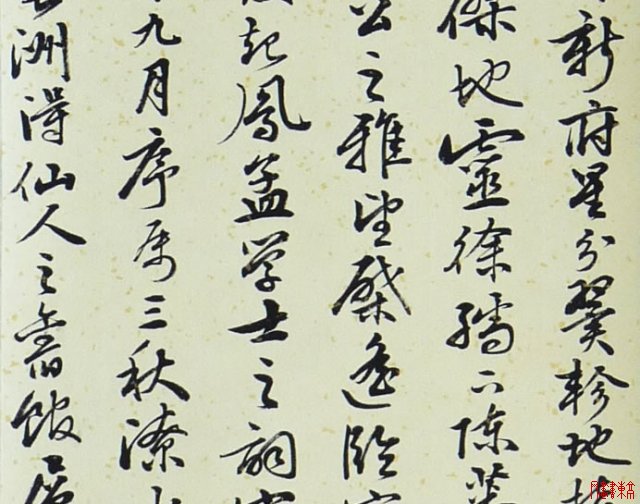 新府星分翼軫地
傑地靈徐孺下陳蕃
公之雅望棨遙臨
起鳳孟学士之詞
九月序屬三秋潦水
洲得仙人之舊館層